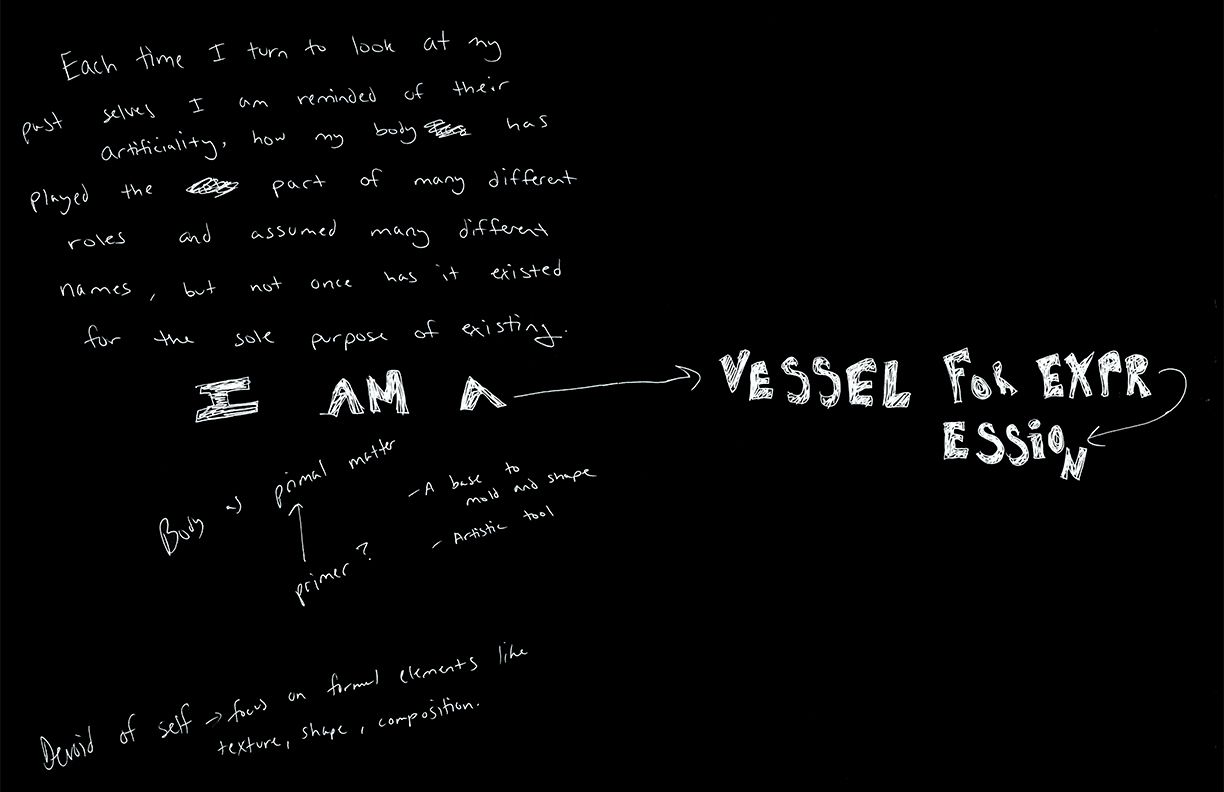 Each time I turn to look at my
past selves I am reminded of their
artificiality, how my body has
played the part of many different
roles and assumed many different
names, but not once has it existed
for the sole purpose of existing.
I AM A → VESSEL FOR EXPR
ESSION
Body → primal matter
- A base to
mold and shape
- Artistic tool
primer?
Devoid of self → focus on formal elements like
texture, shape, composition.